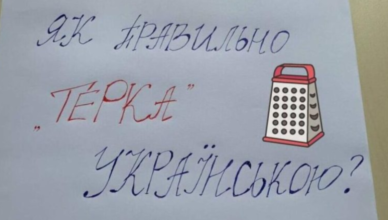 ЯК ПРАВИЛЬНО
„ТЕ́РКА"
УКРАЇНСЬКОЮ?